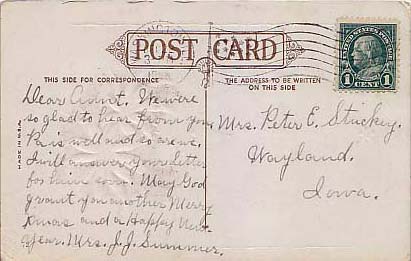 POST CARD
THIS SIDE FOR CORRESPONDENCE
THE ADDRESS TO BE WRITTEN
ON THIS SIDE
UNITED STATES POSTAGE
1 CENT 1
Dear Aunt. We were
so glad to hear from you
Pa is well and so are we.
I will answer your letter
for him soon. May God
grant you another Merry
Xmas and a Happy New
Year. Mrs. J. J. Summer.
Mrs. Peter E. Stuckey.
Wayland.
Iowa.
MADE IN U.S.A.